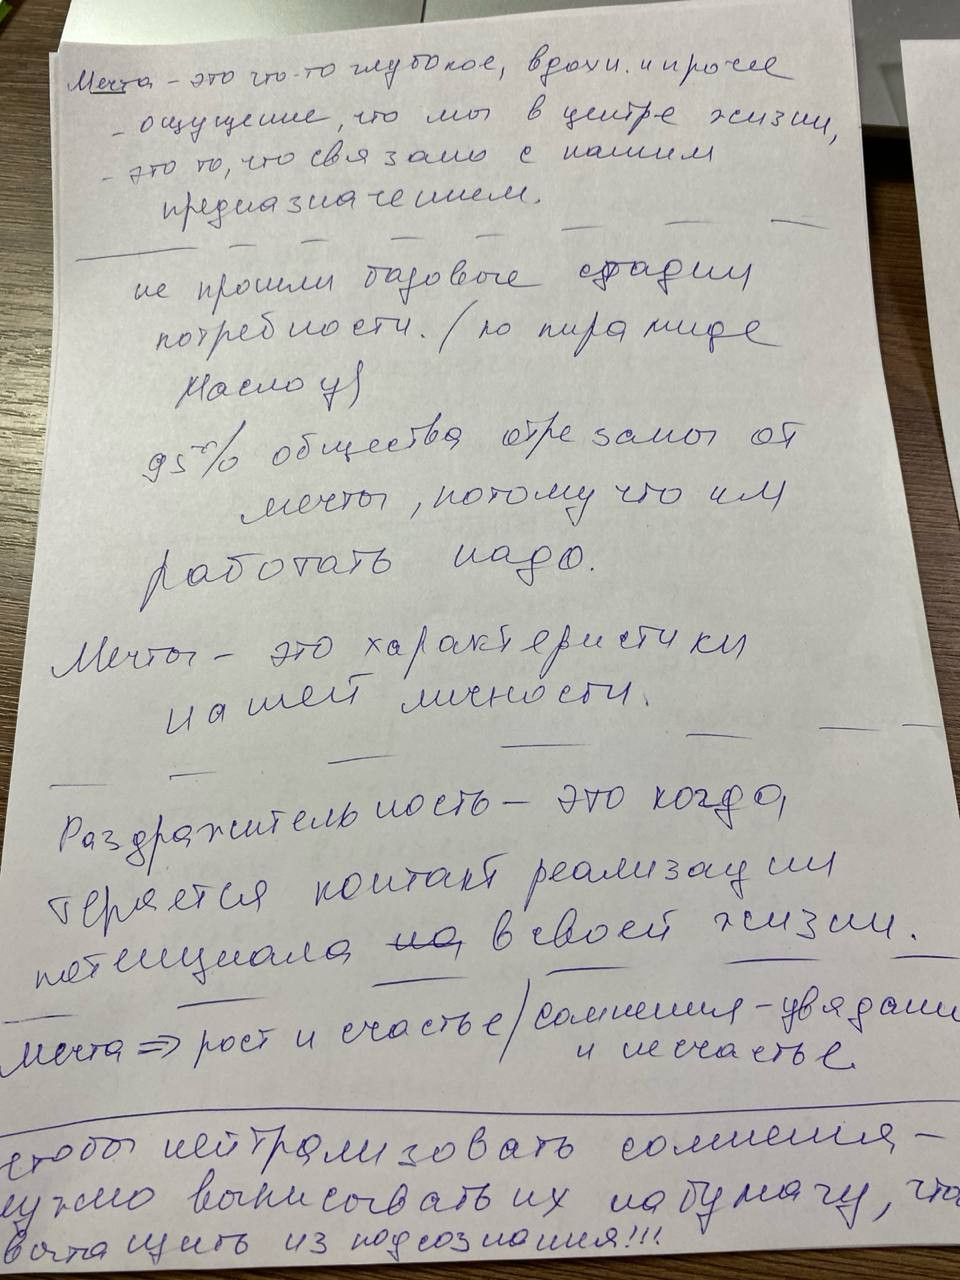 Мечта – это что-то глубокое, вдохн. и проче
- ощущение, что мы в центре жизни,
- это то, что связано с нашим
предназначением.
не прошли базовые стадии
потребности. (по пирамиде
Маслоу)
95% общества отрезаны от
мечты, потому что им
работать надо.
Мечты – это характеристики
нашей личности.
Раздражительность – это когда,
теряется контакт реализации
потенциала на в своей жизни.
Мечта => рост и счастье / сомнения – увядани
и несчастье.
чтобы нейтрализовать сомнения –
нужно выписывать их на бумагу, что
вытащить из подсознания!!!